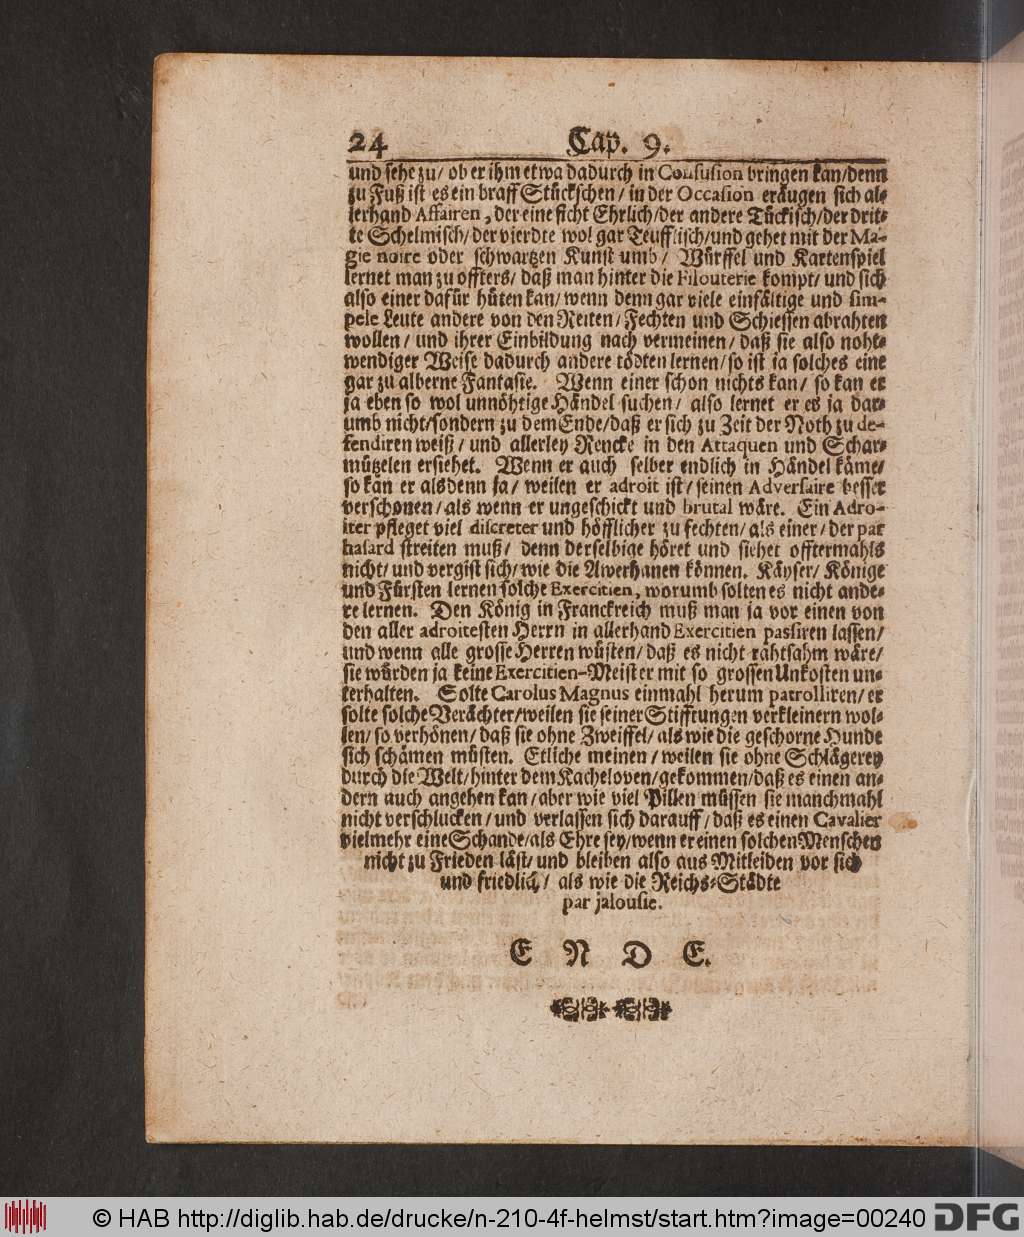 24 Cap. 9.
und sehe zu/ ob er ihm etwa dadurch in Confusion bringen kan/denn
zu Fuß ist es ein braff Stückschen/ in der Occasion eräugen sich al-
lerhand Affairen, der eine ficht Ehrlich/der andere Tückisch/der drit-
te Schelmisch/der vierdte wol gar Teufflisch/und gehet mit der Ma-
gie noire oder schwartzen Kunst umb/ Würffel und Kartenspiel
lernet man zu offters/ daß man hinter die Filouterie kompt/ und sich
also einer dafür hüten kan/wenn denn gar viele einfältige und sim-
pele Leute andere von den Reiten/Fechten und Schiessen abrahten
wollen/ und ihrer Einbildung nach vermeinen/ daß sie also noht-
wendiger Weise dadurch andere tödten lernen/so ist ja solches eine
gar zu alberne Fantasie. Wenn einer schon nichts kan/ so kan er
ja eben so wol unnöhtige Händel suchen/ also lernet er es ja dar-
umb nicht/sondern zu dem Ende/daß er sich zu Zeit der Noth zu de-
fendiren weiß/ und allerley Rencke in den Attaquen und Schar-
mützelen ersiehet. Wenn er auch selber endlich in Händel käme/
so kan er alsdenn ja/ weilen er adroit ist/ seinen Adversaire besser
verschonen/als wenn er ungeschickt und brutal wäre. Ein Adro-
iter pfleget viel discreter und höfflicher zu fechten/als einer/der par
hasard streiten muß/ denn derselbige höret und siehet offtermahls
nicht/ und vergist sich/ wie die Awerhanen können. Käyser/ Könige
und Fürsten lernen solche Exercitien, worumb solten es nicht ande-
re lernen. Den König in Franckreich muß man ja vor einen von
den aller adroitesten Herrn in allerhand Exercitien passiren lassen/
und wenn alle grosse Herren wüsten/ daß es nicht rahtsahm wäre/
sie würden ja keine Exercitien-Meister mit so grossen Unkosten un-
terhalten. Solte Carolus Magnus einmahl herum patrolliren/ er
solte solche Verächter/weilen sie seiner Stifftungen verkleinern wol-
len/ so verhönen/ daß sie ohne Zweiffel/ als wie die geschorne Hunde
sich schämen müsten. Etliche meinen/ weilen sie ohne Schlägerey
durch die Welt/hinter dem Kacheloven/gekommen/daß es einen an-
dern auch angehen kan/aber wie viel Pillen müssen sie manchmahl
nicht verschlucken/und verlassen sich darauff/ daß es einen Cavalier
vielmehr eine Schande/als Ehre sey/wenn er einen solchen Menschen
nicht zu Frieden läst/ und bleiben also aus Mitleiden vor sich
und friedlich/ als wie die Reichs-Städte
par jalousie.
E N D E.
© HAB http://diglib.hab.de/drucke/n-210-4f-helmst/start.htm?image=00240 DFG